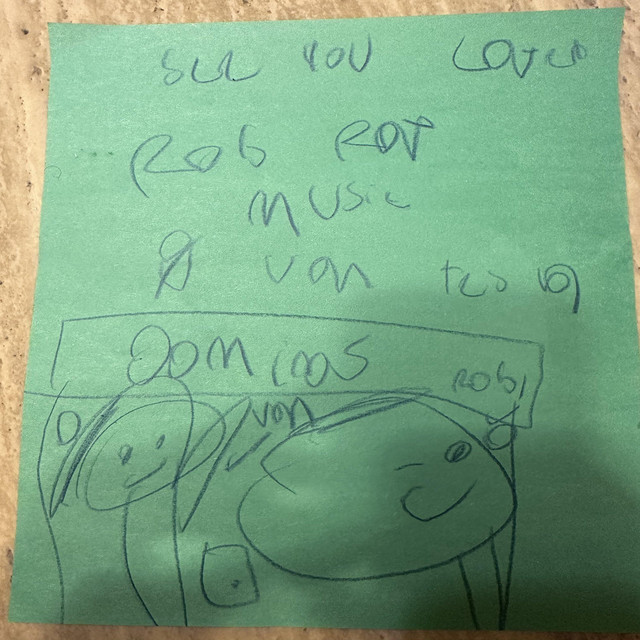 SEE YOU Later
Rob Rot
music
von
Dominos
Rob
von